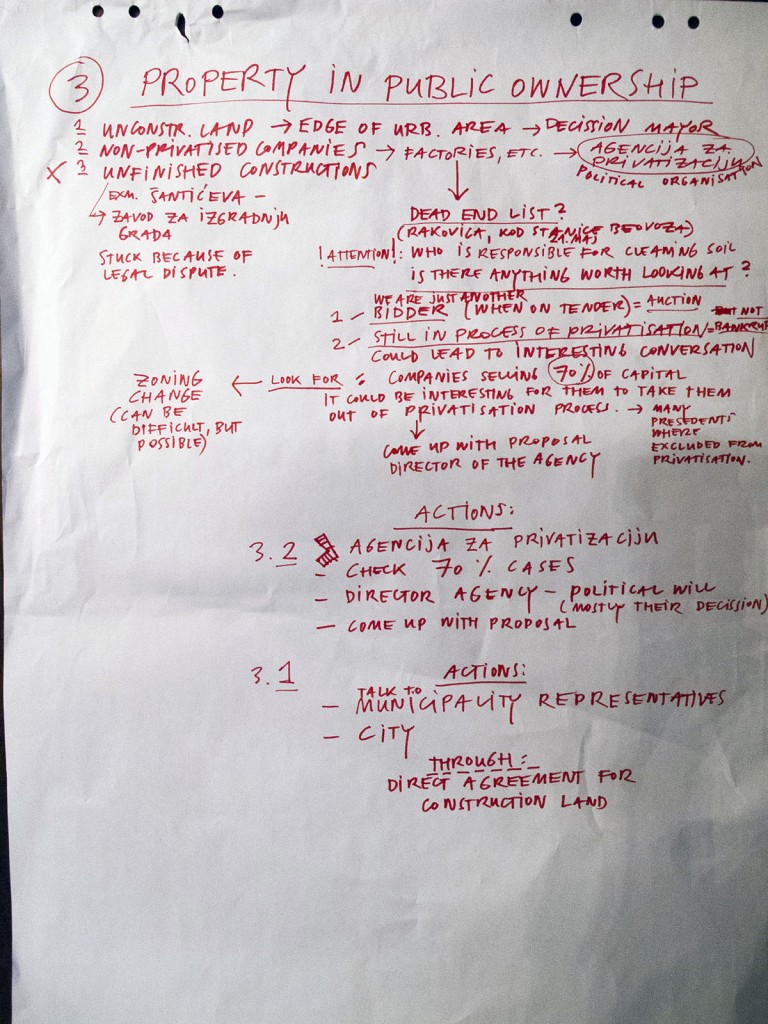 3 PROPERTY IN PUBLIC OWNERSHIP
1 UNCONSTR. LAND → EDGE OF URB. AREA → DECISSION MAYOR
2 NON-PRIVATISED COMPANIES → FACTORIES, ETC. → AGENCIJA ZA PRIVATIZACIJU
POLITICAL ORGANISATION
X 3 UNFINISHED CONSTRUCTIONS
EXM. ŠANTIĆEVA –
→ ZAVOD ZA IZGRADNJU
GRADA
STUCK BECAUSE OF
LEGAL DISPUTE.
DEAD END LIST?
(RAKOVICA, KOD STANICE BEOVOZA)
21. MAJ
! ATTENTION!: WHO IS RESPONSIBLE FOR CLEANING SOIL
IS THERE ANYTHING WORTH LOOKING AT?
WE ARE JUST ANOTHER
1 – BIDDER (WHEN ON TENDER) = AUCTION
2 – STILL IN PROCESS OF PRIVATISATION = NOT BANKRUP
COULD LEAD TO INTERESTING CONVERSATION
ZONING
CHANGE
(CAN BE
DIFFICULT, BUT
POSSIBLE)
← LOOK FOR : COMPANIES SELLING 70% OF CAPITAL
IT COULD BE INTERESTING FOR THEM TO TAKE THEM
OUT OF PRIVATISATION PROCESS. → MANY
PRESEDENTS
WHERE
EXCLUDED FROM
PRIVATISATION.
COME UP WITH PROPOSAL
DIRECTOR OF THE AGENCY
ACTIONS:
3.2 AGENCIJA ZA PRIVATIZACIJU
– CHECK 70% CASES
– DIRECTOR AGENCY – POLITICAL WILL
(MOSTLY THEIR DECISSION)
– COME UP WITH PROPOSAL
3.1 ACTIONS:
TALK TO
– MUNICIPALITY REPRESENTATIVES
– CITY
THROUGH:
DIRECT AGREEMENT FOR
CONSTRUCTION LAND